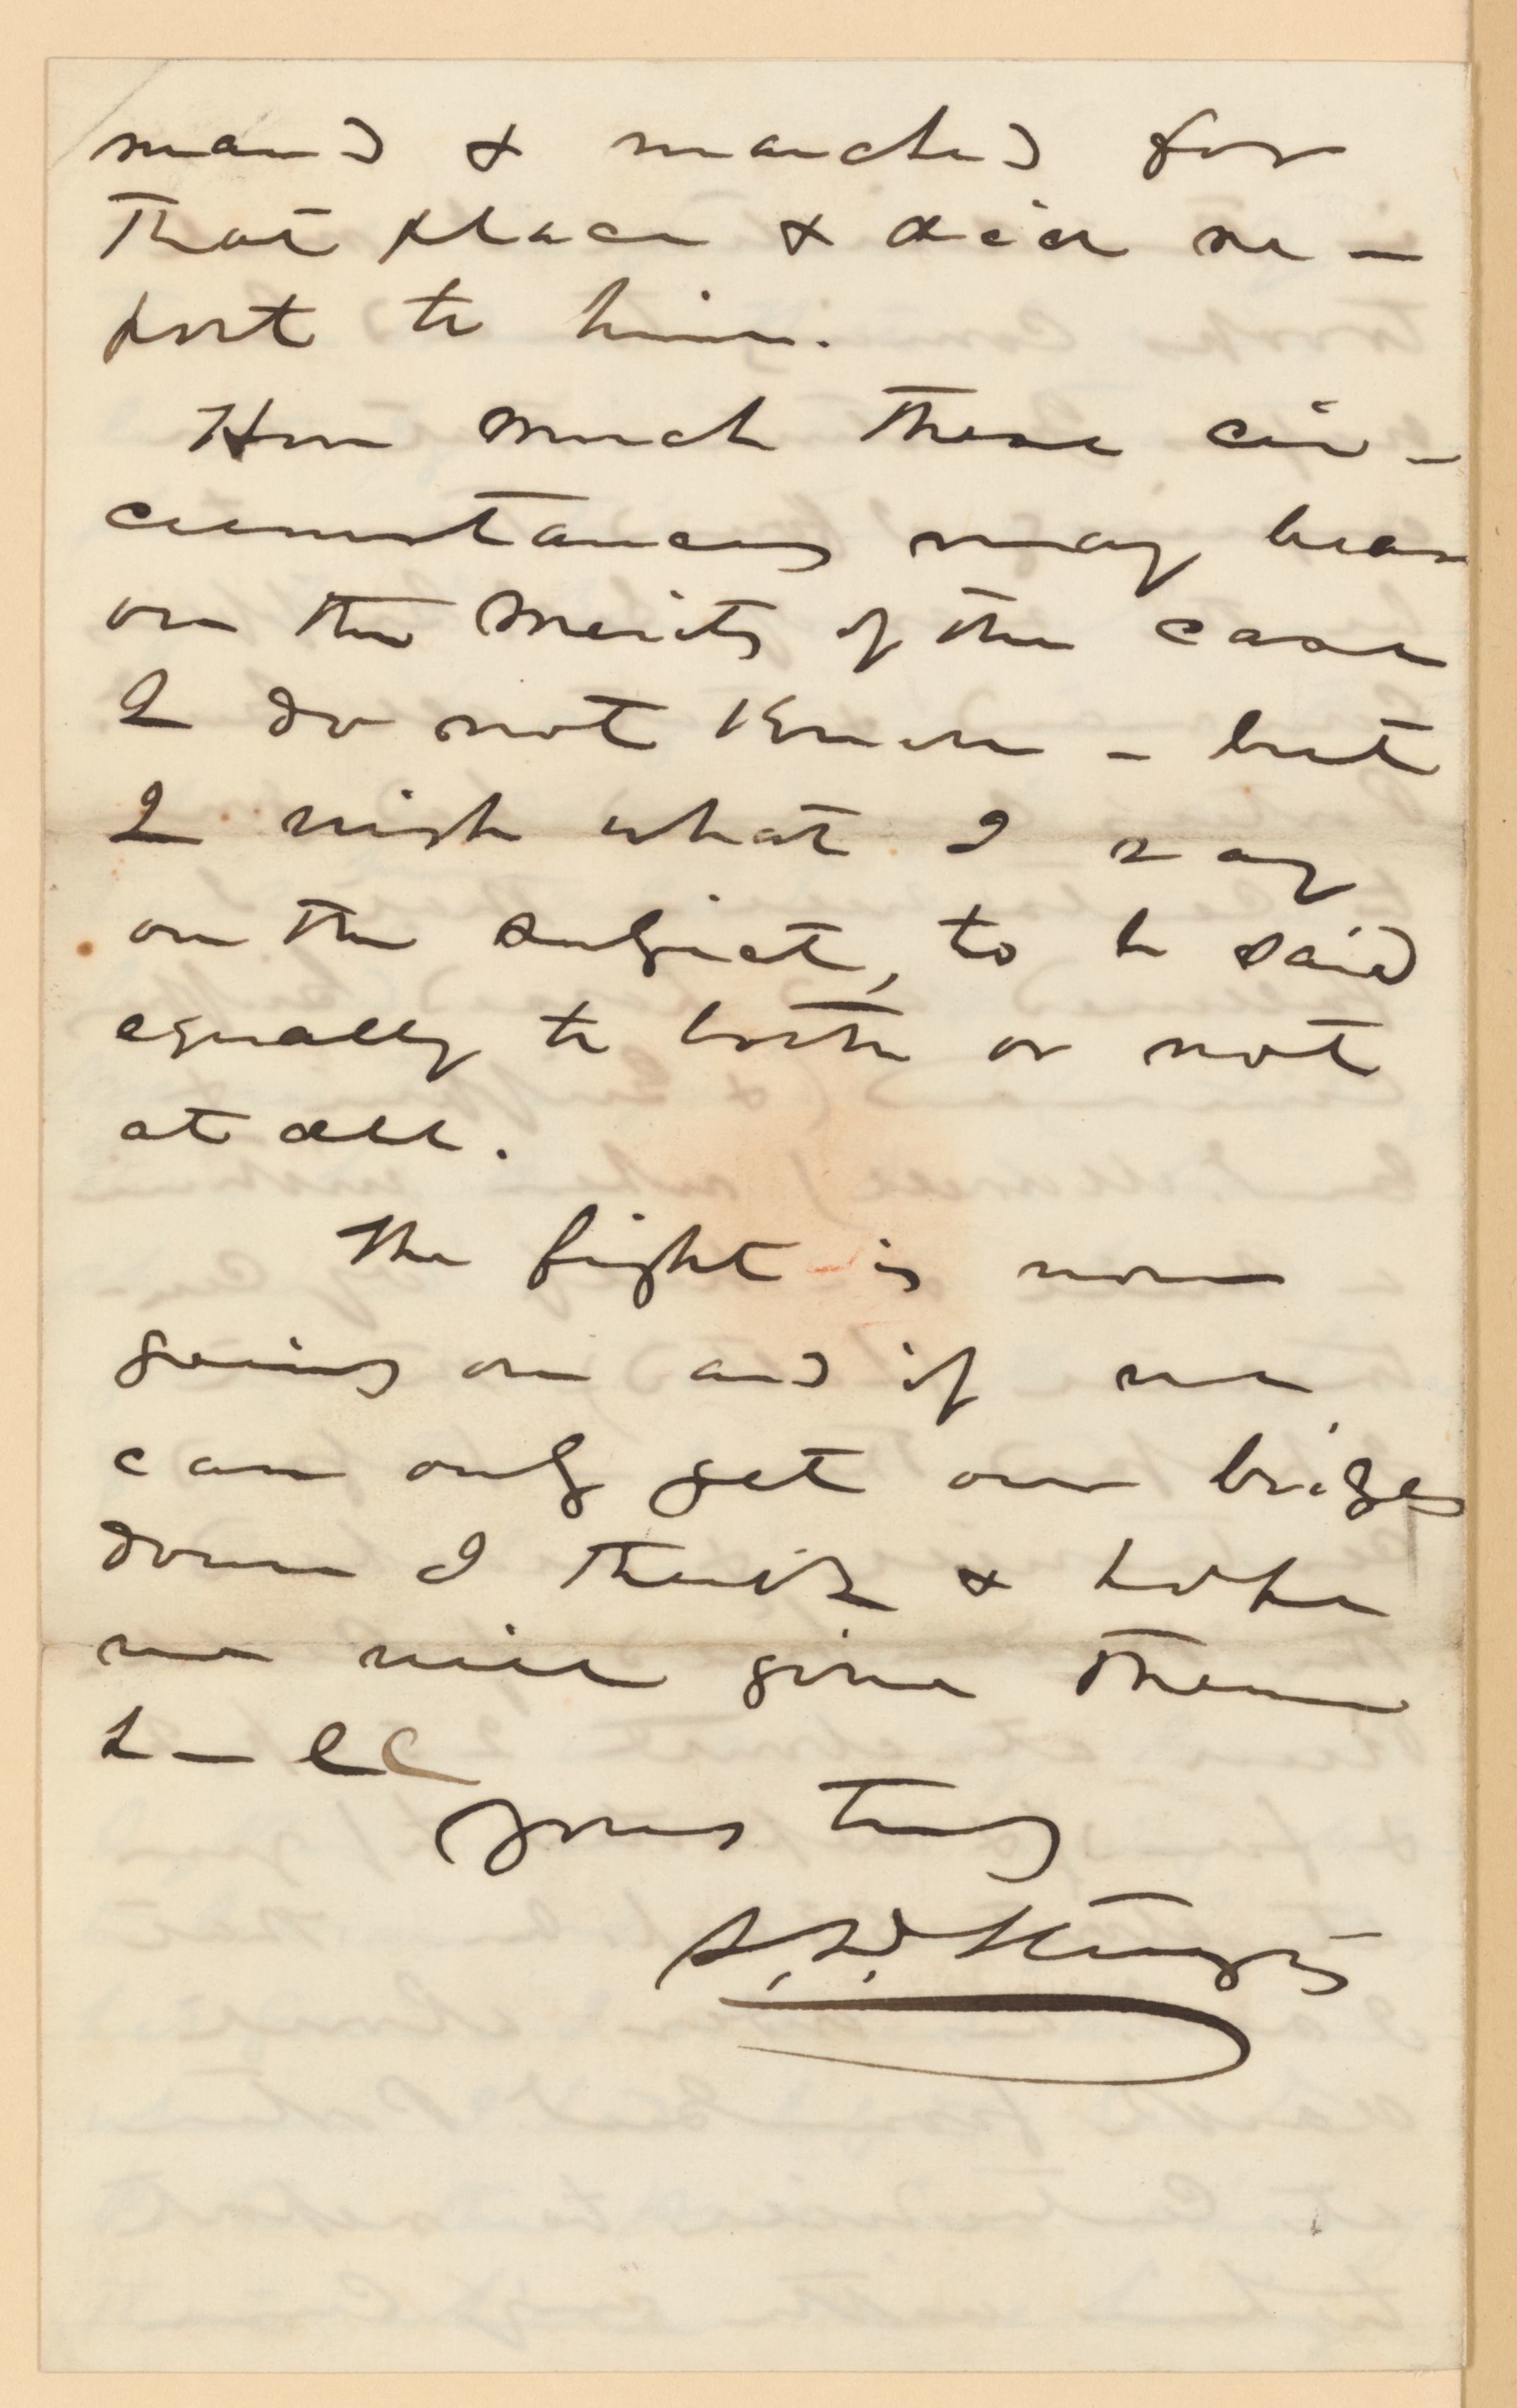 mand & marched for
that place & did re-
port to him.
How much these cir-
cumstances may bear
on the merits of the case
I do not know - but
I wish what I say
on the subject, to be said
equally to both or not
at all.
The fight is now
going on and if we
can only get our briges
down I think & hope
we will give them
h-ll
Yours truly
S. D. Sturgis